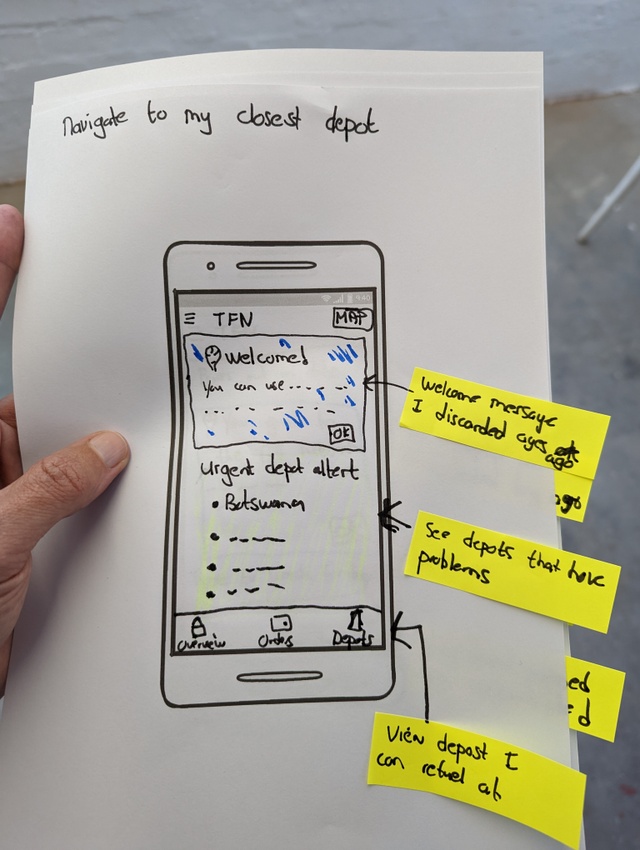 Navigate to my closest depot
TFN
MAP
Welcome!
You can use
OK
Urgent depot altert
Botswana
Overview
Orders
Depots
Welcome message
I discarded ages
ago
ago
See depots that have
problems
ed
ed
View depost I
can refuel at